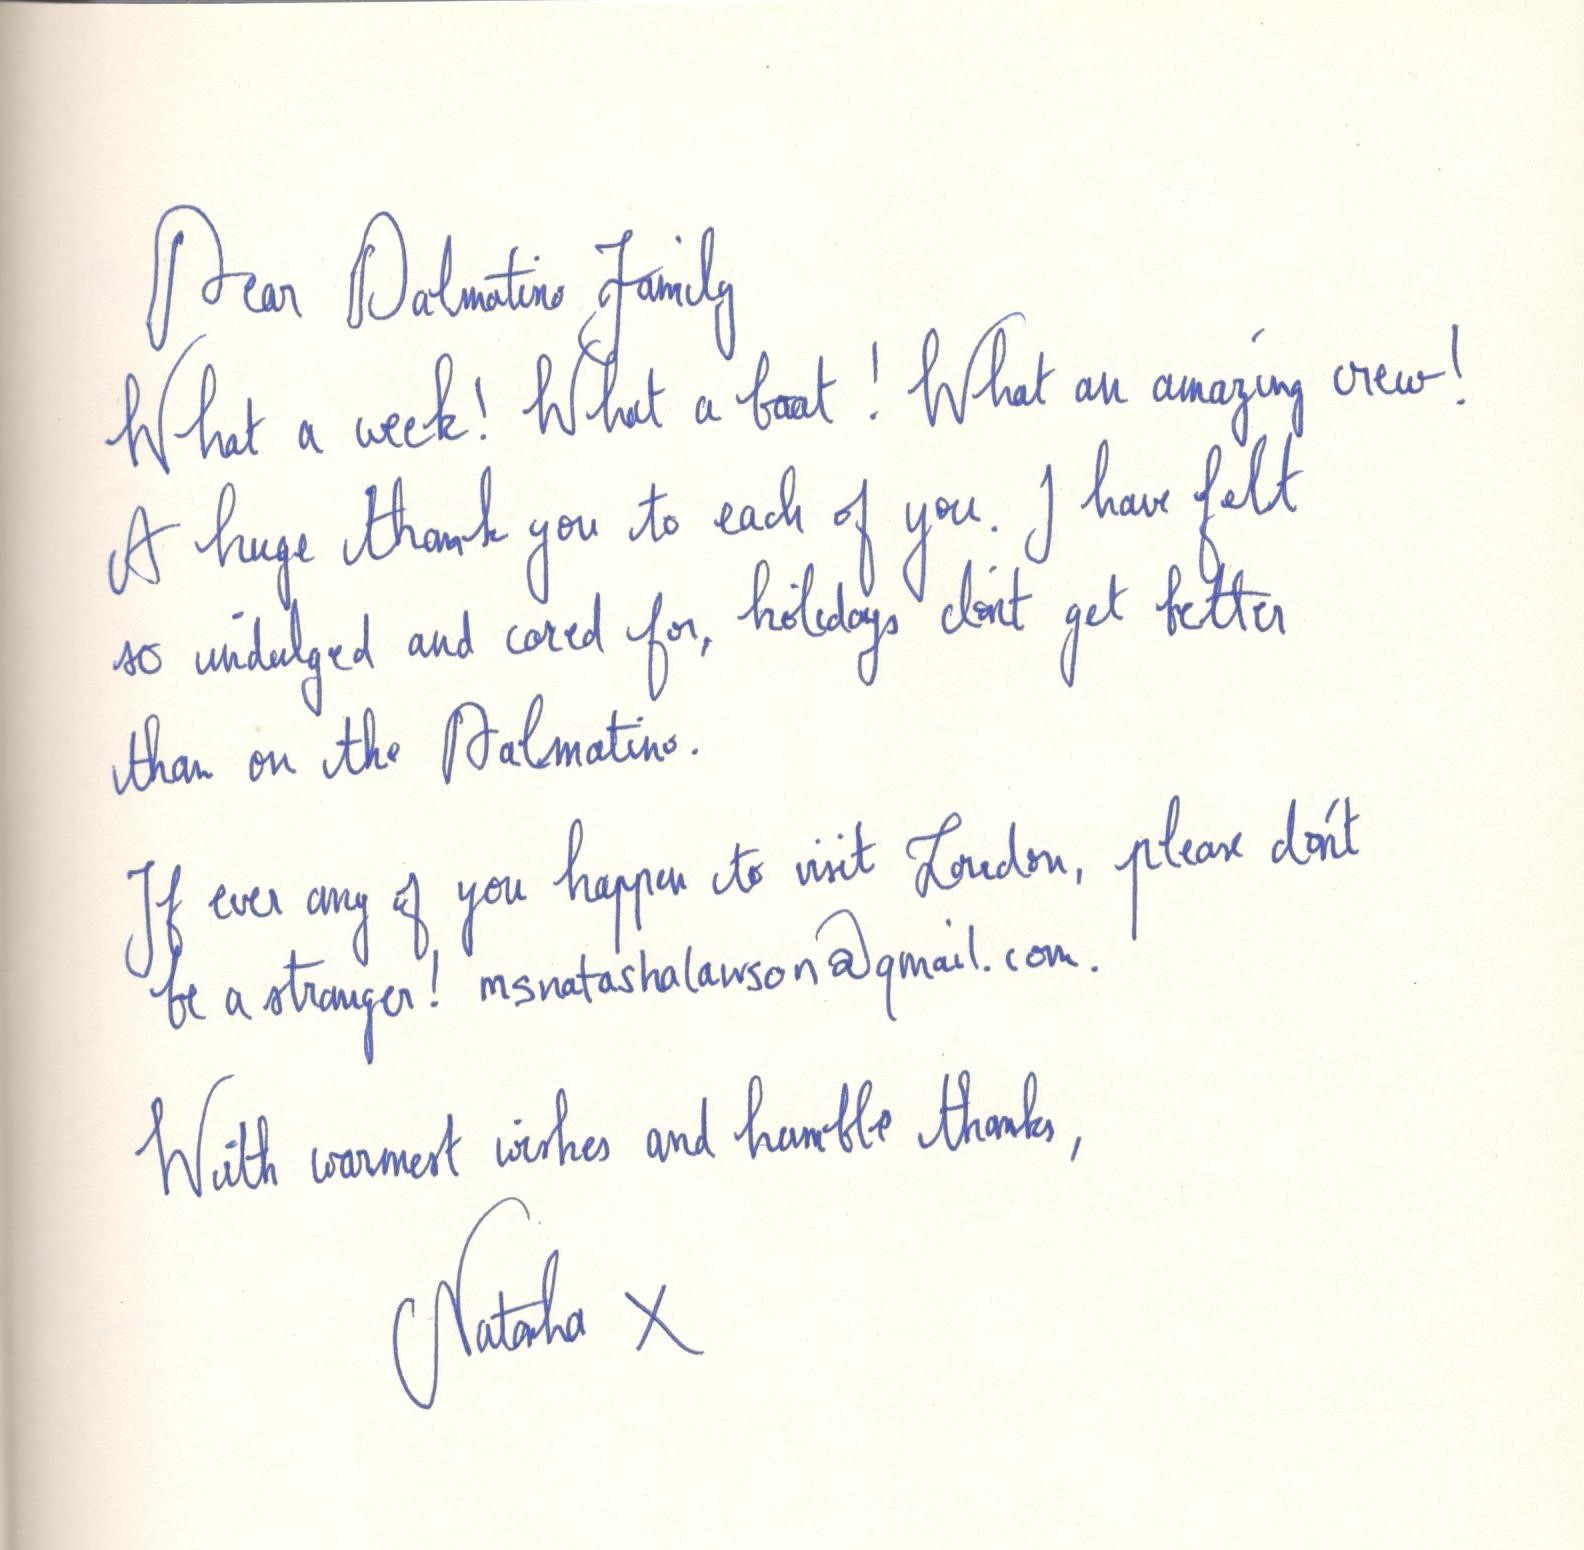 Dear Dalmatino Family
What a week! What a boat! What an amazing crew!
A huge thank you to each of you. I have felt
so indulged and cared for, holidays don't get better
than on the Dalmatino.
If ever any of you happen to visit London, please don't
be a stranger! msnatashalawson@gmail.com.
With warmest wishes and humble thanks,
Natasha X